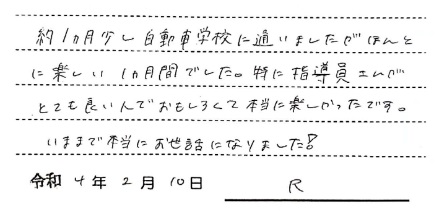 約1ヵ月少し自動車学校に通いましたがほんと
に楽しい1ヵ月間でした。特に指導員さんが
とても良い人でおもしろくて本当に楽しかったです。
いままで本当にお世話になりました!
令和4年2月10日 R